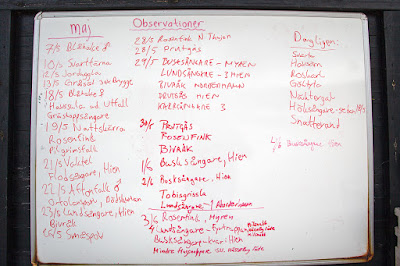 Maj
7/5 Blåhake ♂
10/5 Svarttärna
12/5 Jorduggla
18/5 Blåhake ♀
Havssula ad Utfall
Gräshoppsångare
19/5 Nattskärra
Rosenfink
Pilgrimsfalk
21/5 Vaktel
Flodsångare, Hien
22/5 Aftonfalk ♂
Ortolansparv,
23/5 Lundsångare, Hien
Bivråk
26/5 Småspov
Observationer
28/5 Rosenfink N
28/5 Prutgås
29/5 BUSKSÅNGARE - MYREN
LUNDSÅNGARE - IHIEN
BIVRÅK
HIEN
KÄRRSÅNGARE 3
30/5 PRUTGÅS
ROSENFINK
BIVRÅK
1/6 Busksångare, Hien
2/6 Busksångare, Hien
Tobisgrissla
Lundsångare - 1
3/6 Rosenfink, Myren
4 Lundsångare - Fyrknuppen
Busksångare - kvar i Hien
Mindre flugsnappare
Dagligen:
Svärta
Havsörn
Roskarl
Göktyta
Näktergal
Härmsångare
Snatterand
4/6 Busksångare Hien